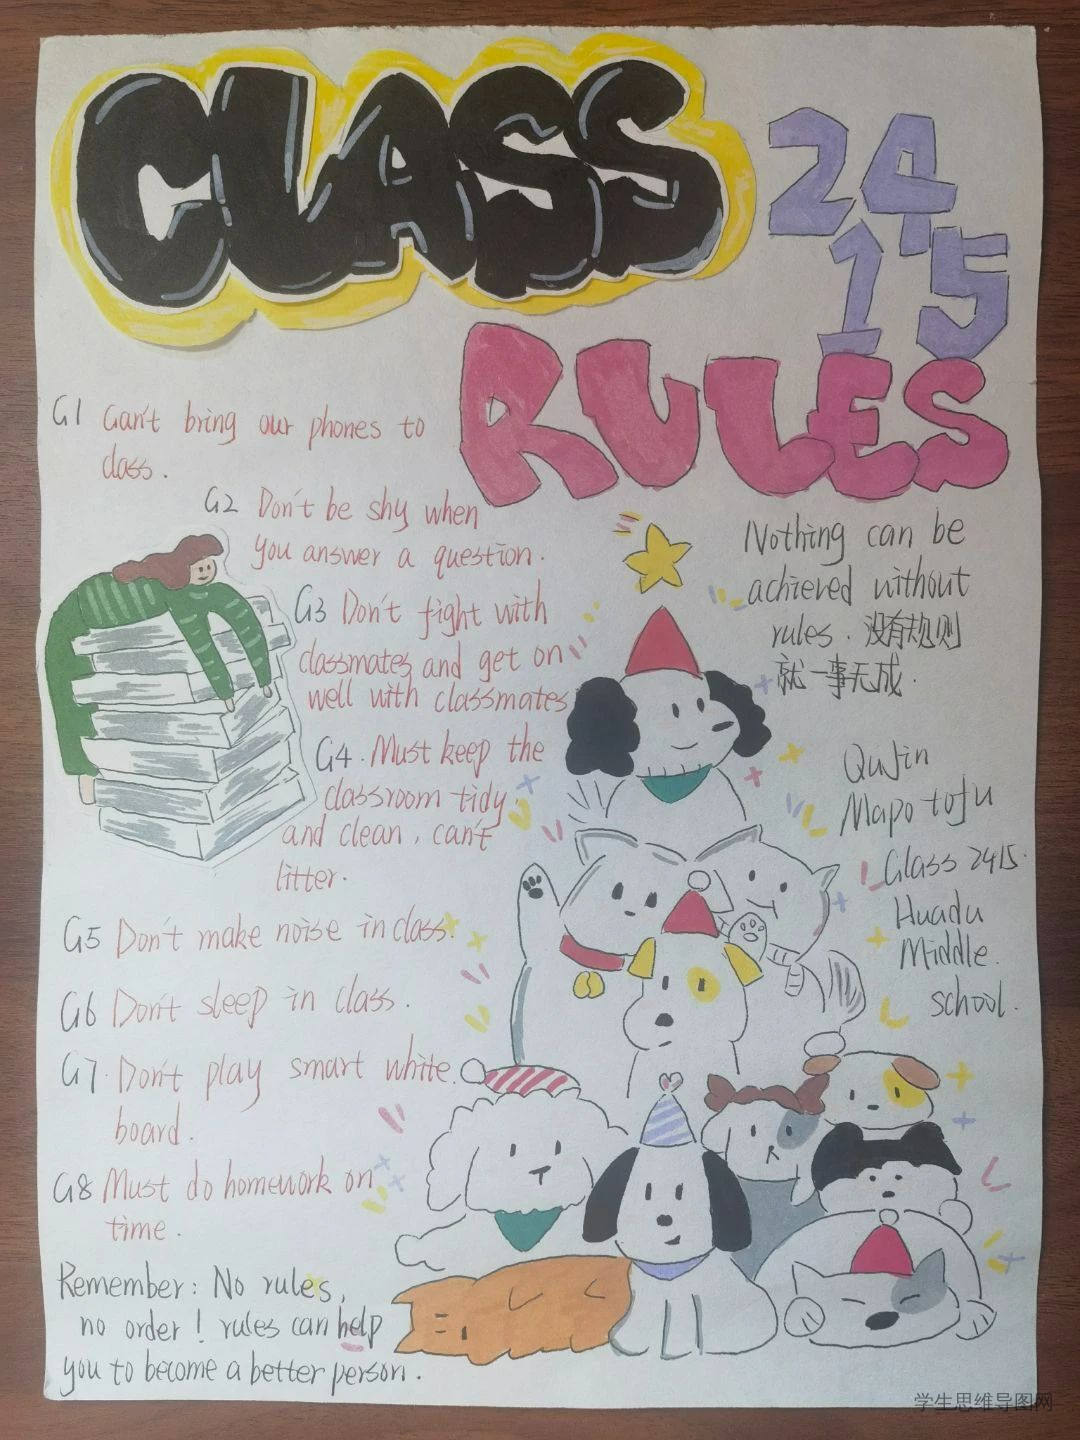 CLASS
24
15
RULES
G1 Can't bring our phones to
class.
G2 Don't be shy when
you answer a question.
G3 Don't fight with
classmates and get on
well with classmates
G4. Must keep the
classroom tidy
and clean, can't
litter.
G5 Don't make noise in class.
G6 Don't sleep in class.
G7. Don't play smart white
board.
G8 Must do homework on
time.
Remember: No rules,
no order! rules can help
you to become a better person.
Nothing can be
achieved without
rules. 没有规则
就一事无成.
QuJin
Mapo tofu
Class 2415.
Huadu
Middle.
school.
学生思维导图网